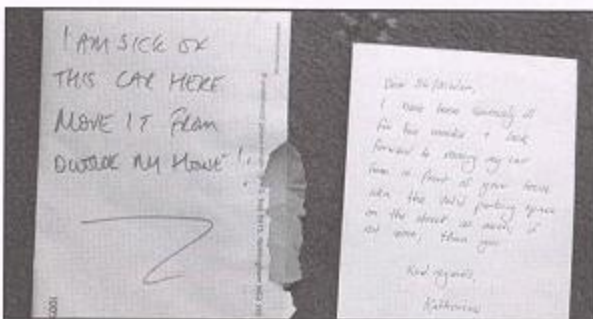 I AM SICK OF
THIS CAR HERE
MOVE IT FROM
OUTSIDE MY HOUSE!
Dear Sir/Madam,
I have been seriously ill
for two weeks & look
forward to moving my car
from in front of your house
when the valid parking space
on the street as much, if
not more, than you
Kind regards,
Katherine